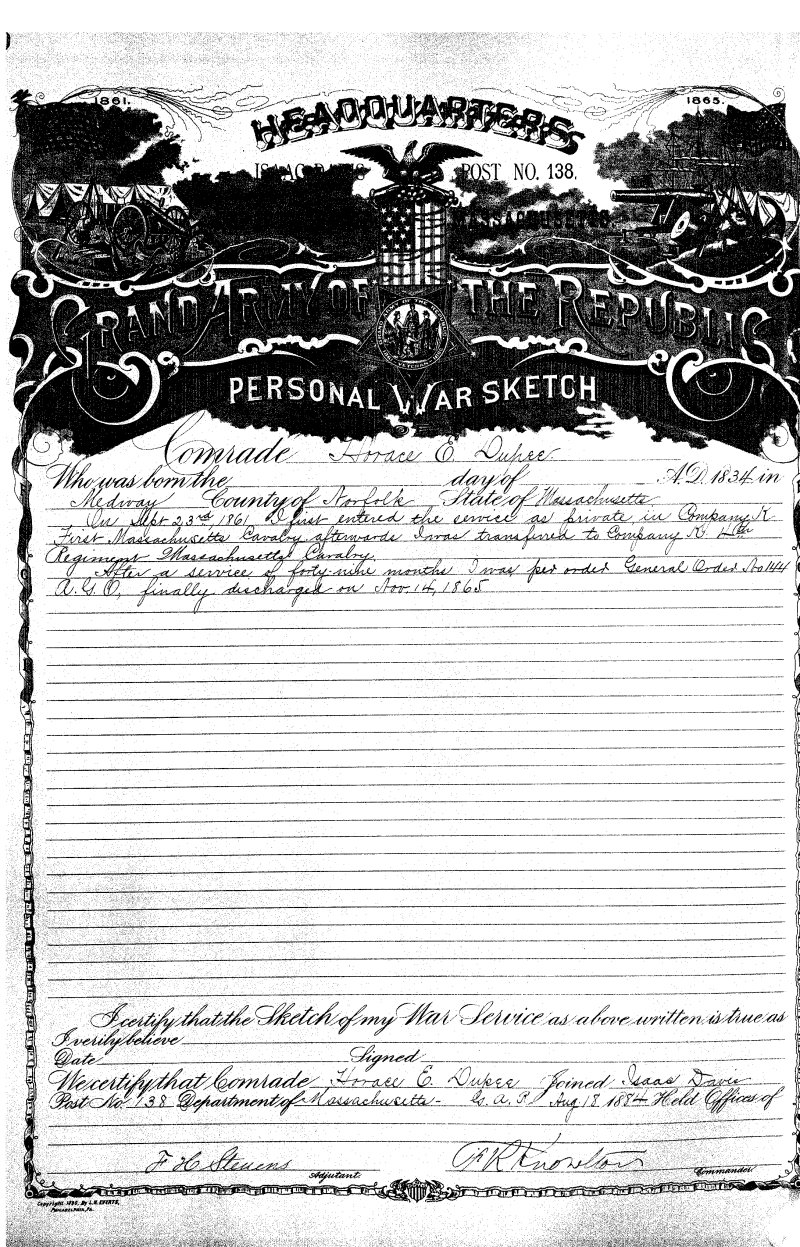 1861.
1865.
HEADQUARTERS
ISAAC DAVIS POST NO. 138.
MASSACHUSETTS
GRAND ARMY OF THE REPUBLIC
PERSONAL WAR SKETCH
Comrade Horace E. Dupee
Who was born the day of A.D. 1834 in
Medway County of Norfolk State of Massachusetts
On Sept 23rd 1861 I first entered the service as private in Company K
First Massachusetts Cavalry afterwards I was transferred to Company K. 4th
Regiment Massachusetts Cavalry.
After a service of forty-nine months I was per order General Order No 144
A.G.O. finally discharged on Nov. 14, 1865
I certify that the Sketch of my War Service as above written is true as
I verily believe
Date Signed
We certify that Comrade Horace E. Dupee Joined Isaac Davis
Post No. 138 Department of Massachusetts - G. A. R. Aug 18 1884 Held Offices of
F H Stevens Adjutant. Knowlton Commander
Copyright 1890, By L.H. EVERTS,
PHILADELPHIA, PA.